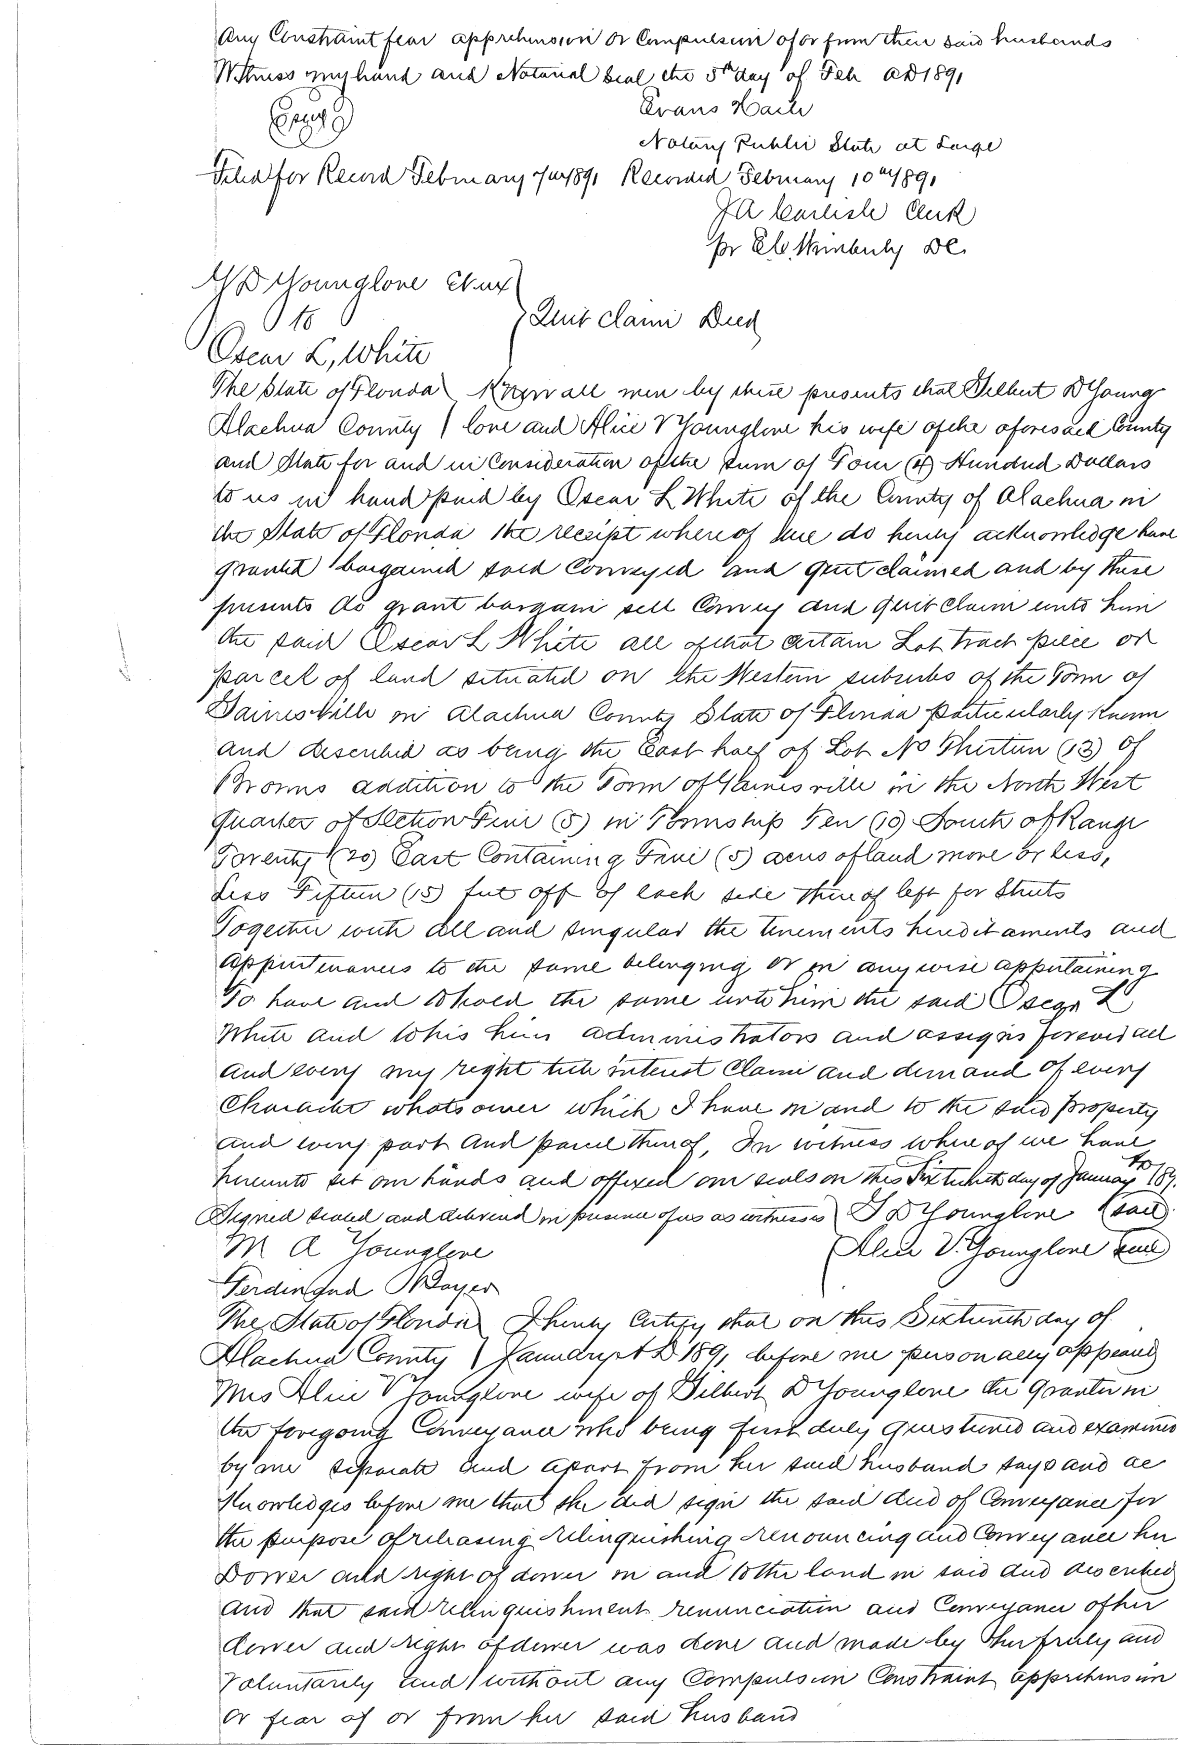 Any Constraint fear apprehension or Compulsion of or from their said husbands
Witness my hand and Notarial Seal the 5th day of Feb AD 1891
Evans Haile
Notary Public State at Large
Filed for Record February 7th 1891 Recorded February 10th 1891
J A Carlisle Clerk
pr E C Wimberly DC
G D Younglove et ux
to
Quit Claim Deed
Oscar L, White
The State of Florida Know all men by these presents that Gilbert D Young
Alachua County love and Alice V Younglove his wife of the aforesaid County
and State for and in Consideration of the sum of Four (4) Hundred Dollars
to us in hand paid by Oscar L White of the County of Alachua in
the State of Florida the receipt where of we do hereby acknowledge have
granted bargained sold Conveyed and quit claimed and by these
presents do grant bargain sell Convey and quit Claim unto him
the said Oscar L White all of that certain Lot tract piece or
parcel of land situated on the Western suburbs of the Town of
Gainesville in Alachua County State of Florida particularly known
and described as being the East half of Lot No Thirteen (13) of
Browns addition to the Town of Gainesville in the North West
quarter of Section Five (5) in Township Ten (10) South of Range
Twenty (20) East Containing Five (5) acres of land more or less,
Less Fifteen (15) feet off of each side there of left for Streets
Together with all and singular the tenements hereditaments and
appurtenances to the same belonging or in any wise appertaining
To have and to hold the same unto him the said Oscar L
White and to his heirs administrators and assigns forever all
and every my right title interest Claim and demand of every
Character whatsoever which I have in and to the said property
and every part and parcel thereof, In witness where of we have
hereunto set our hands and affixed our seals on this Sixteenth day of January AD 189,
Signed sealed and delivered in presence of us as witnesses G D Younglove (seal)
M A Younglove Alice V. Younglove (seal)
Ferdinand Bayer
The State of Florida I hereby Certify that on this Sixteenth day of
Alachua County January A D 1891 before me personally appeared
Mrs Alice V Younglove wife of Gilbert D Younglove the Grantor in
the foregoing Conveyance who being first duly questioned and examined
by me separate and apart from her said husband says and ac
knowledges before me that she did sign the said deed of Conveyance for
the purpose of releasing relinquishing renouncing and Conveyance her
Dower and right of dower in and to the land in said deed described
and that said relinquishment renunciation and Conveyance of her
dower and right of dower was done and made by her freely and
voluntarily and without any Compulsion Constraint apprehension
or fear of or from her said husband